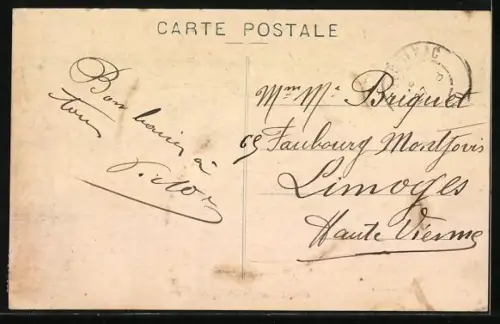 CARTE POSTALE
Bon baiser à
tous
Victor
Mme Briquet
69 Faubourg Montjovis
Limoges
Haute Vienne